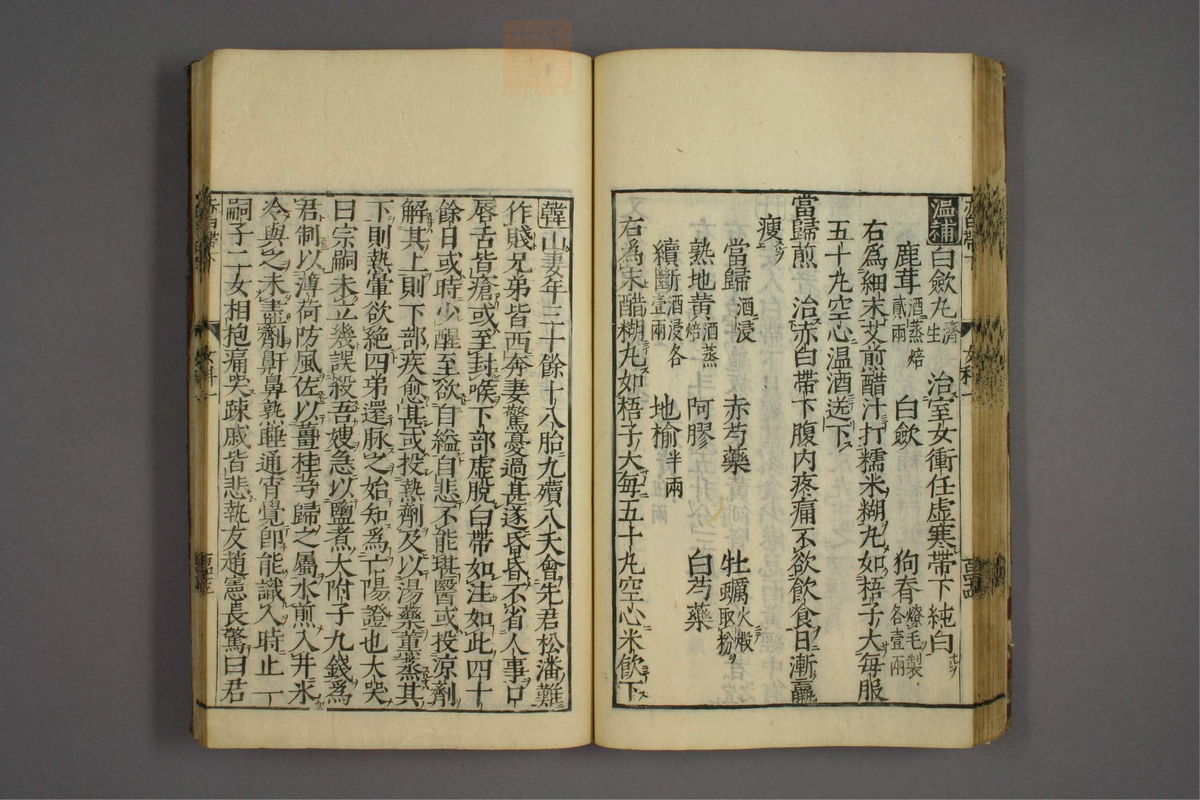 溫補白歛丸濟生 治室女衝任虛寒帶下純白
鹿茸酒蒸焙貳兩 白歛 狗脊燎毛製各壹兩
右爲細末艾煎醋汁打糯米糊丸如梧子大每服
五十丸空心温酒送下
當歸煎 治赤白帶下腹內疼痛不欲飲食日漸羸
瘦
當歸酒浸 赤芍藥 牡蠣火煅取粉
熟地黃酒蒸焙 阿膠 白芍藥
續斷酒浸各壹兩 地榆半兩
右爲末醋糊丸如梧子大每五十丸空心米飲下
韓山妻年三十餘十八胎九殰八夭會先君松潘難
作賤兄弟皆西奔妻驚憂過甚遂昏昏不省人事口
唇舌皆瘡或至封喉下部虛脫白帶如注如此四十
餘日或時少醒至欲自縊自悲不能堪醫或投凉劑
解其上則下部疾愈甚或投熱劑及以湯藥薰蒸其
下則熱暈欲絕四弟還脉之始知爲亡陽證也大哭
曰宗嗣未立幾誤殺吾嫂急以鹽煮大附子九錢爲
君制以薄荷防風佐以薑桂芎歸之屬水煎入井氷
冷與之未盡劑鼾鼻熟睡通宵覺卽能識人時止一
嗣子二女相抱痛哭疎戚皆悲執友趙憲長驚曰君